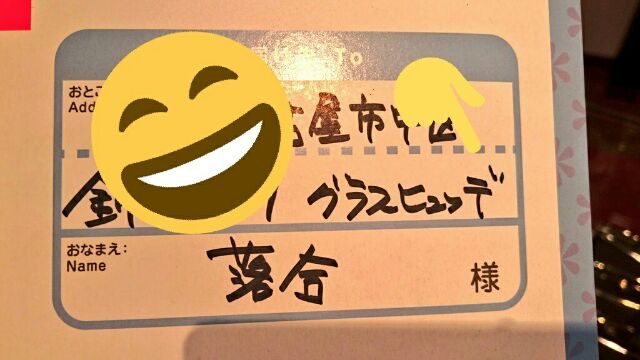 To
おとこ
Add
古屋市中区
錦 1 グラスヒュッテ
おなまえ:
Name
落合 様